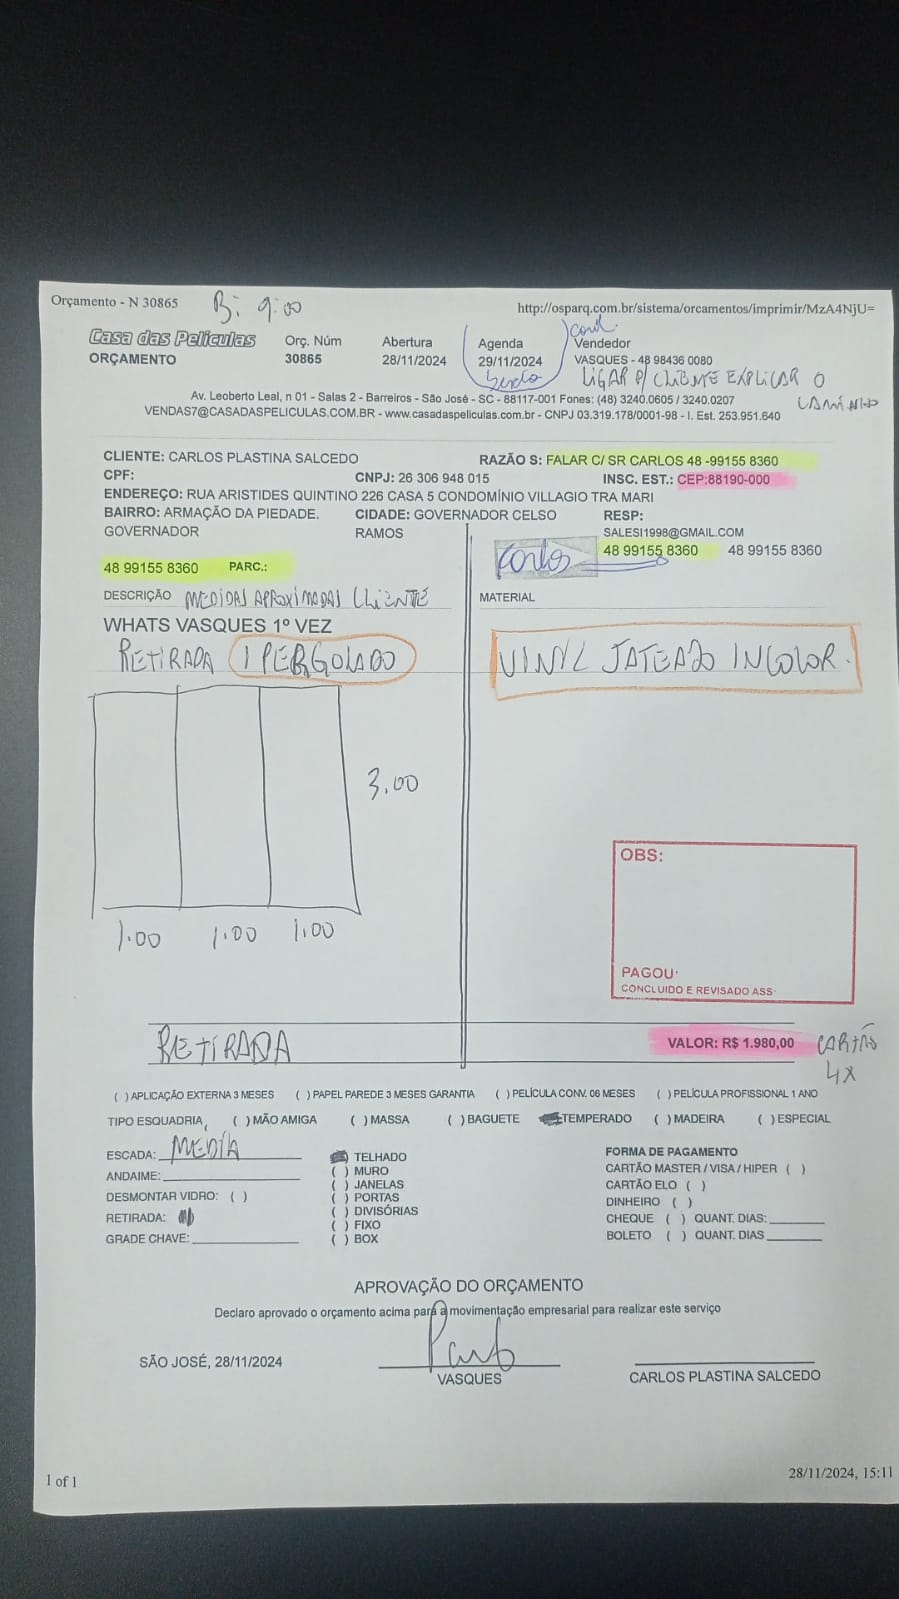 Orçamento - N 30865
9:00
http://osparq.com.br/sistema/orcamentos/imprimir/MzA4NjU=
Casa das Películas
ORÇAMENTO
Orç. Núm
30865
Abertura
28/11/2024
Agenda
29/11/2024
Sexta
Vendedor
VASQUES - 48 98436 0080
LIGAR P/ CLIENTE EXPLICAR O
CAMINHO
Av. Leoberto Leal, n 01 - Salas 2 - Barreiros - São José - SC - 88117-001 Fones: (48) 3240.0605 / 3240.0207
VENDAS7@CASADASPELICULAS.COM.BR - www.casadaspeliculas.com.br - CNPJ 03.319.178/0001-98 - I. Est. 253.951.640
CLIENTE: CARLOS PLASTINA SALCEDO
RAZÃO S: FALAR C/ SR CARLOS 48 -99155 8360
CPF:
CNPJ: 26 306 948 015
INSC. EST.: CEP:88190-000
ENDEREÇO: RUA ARISTIDES QUINTINO 226 CASA 5 CONDOMÍNIO VILLAGIO TRA MARI
BAIRRO: ARMAÇÃO DA PIEDADE.
GOVERNADOR
CIDADE: GOVERNADOR CELSO
RAMOS
RESP:
SALESI1998@GMAIL.COM
48 99155 8360 48 99155 8360
Carlos
48 99155 8360 PARC.:
DESCRIÇÃO MEDIDAS APROXIMADAS CLIENTE
MATERIAL
WHATS VASQUES 1º VEZ
RETIRADA 1 PERGOLADO
VINIL JATEADO INCOLOR.
3.00
1.00 1.00 1.00
OBS:
PAGOU:
CONCLUIDO E REVISADO ASS:
RETIRADA
VALOR: R$ 1.980,00
CARTÃO
4X
( ) APLICAÇÃO EXTERNA 3 MESES ( ) PAPEL PAREDE 3 MESES GARANTIA ( ) PELÍCULA CONV. 06 MESES ( ) PELÍCULA PROFISSIONAL 1 ANO
TIPO ESQUADRIA ( ) MÃO AMIGA ( ) MASSA ( ) BAGUETE TEMPERADO ( ) MADEIRA ( ) ESPECIAL
ESCADA: MEDIA
ANDAIME:
DESMONTAR VIDRO: ( )
RETIRADA:
GRADE CHAVE:
TELHADO
( ) MURO
( ) JANELAS
( ) PORTAS
( ) DIVISÓRIAS
( ) FIXO
( ) BOX
FORMA DE PAGAMENTO
CARTÃO MASTER / VISA / HIPER ( )
CARTÃO ELO ( )
DINHEIRO ( )
CHEQUE ( ) QUANT. DIAS:
BOLETO ( ) QUANT. DIAS
APROVAÇÃO DO ORÇAMENTO
Declaro aprovado o orçamento acima para a movimentação empresarial para realizar este serviço
SÃO JOSÉ, 28/11/2024
VASQUES
CARLOS PLASTINA SALCEDO
1 of 1
28/11/2024, 15:11